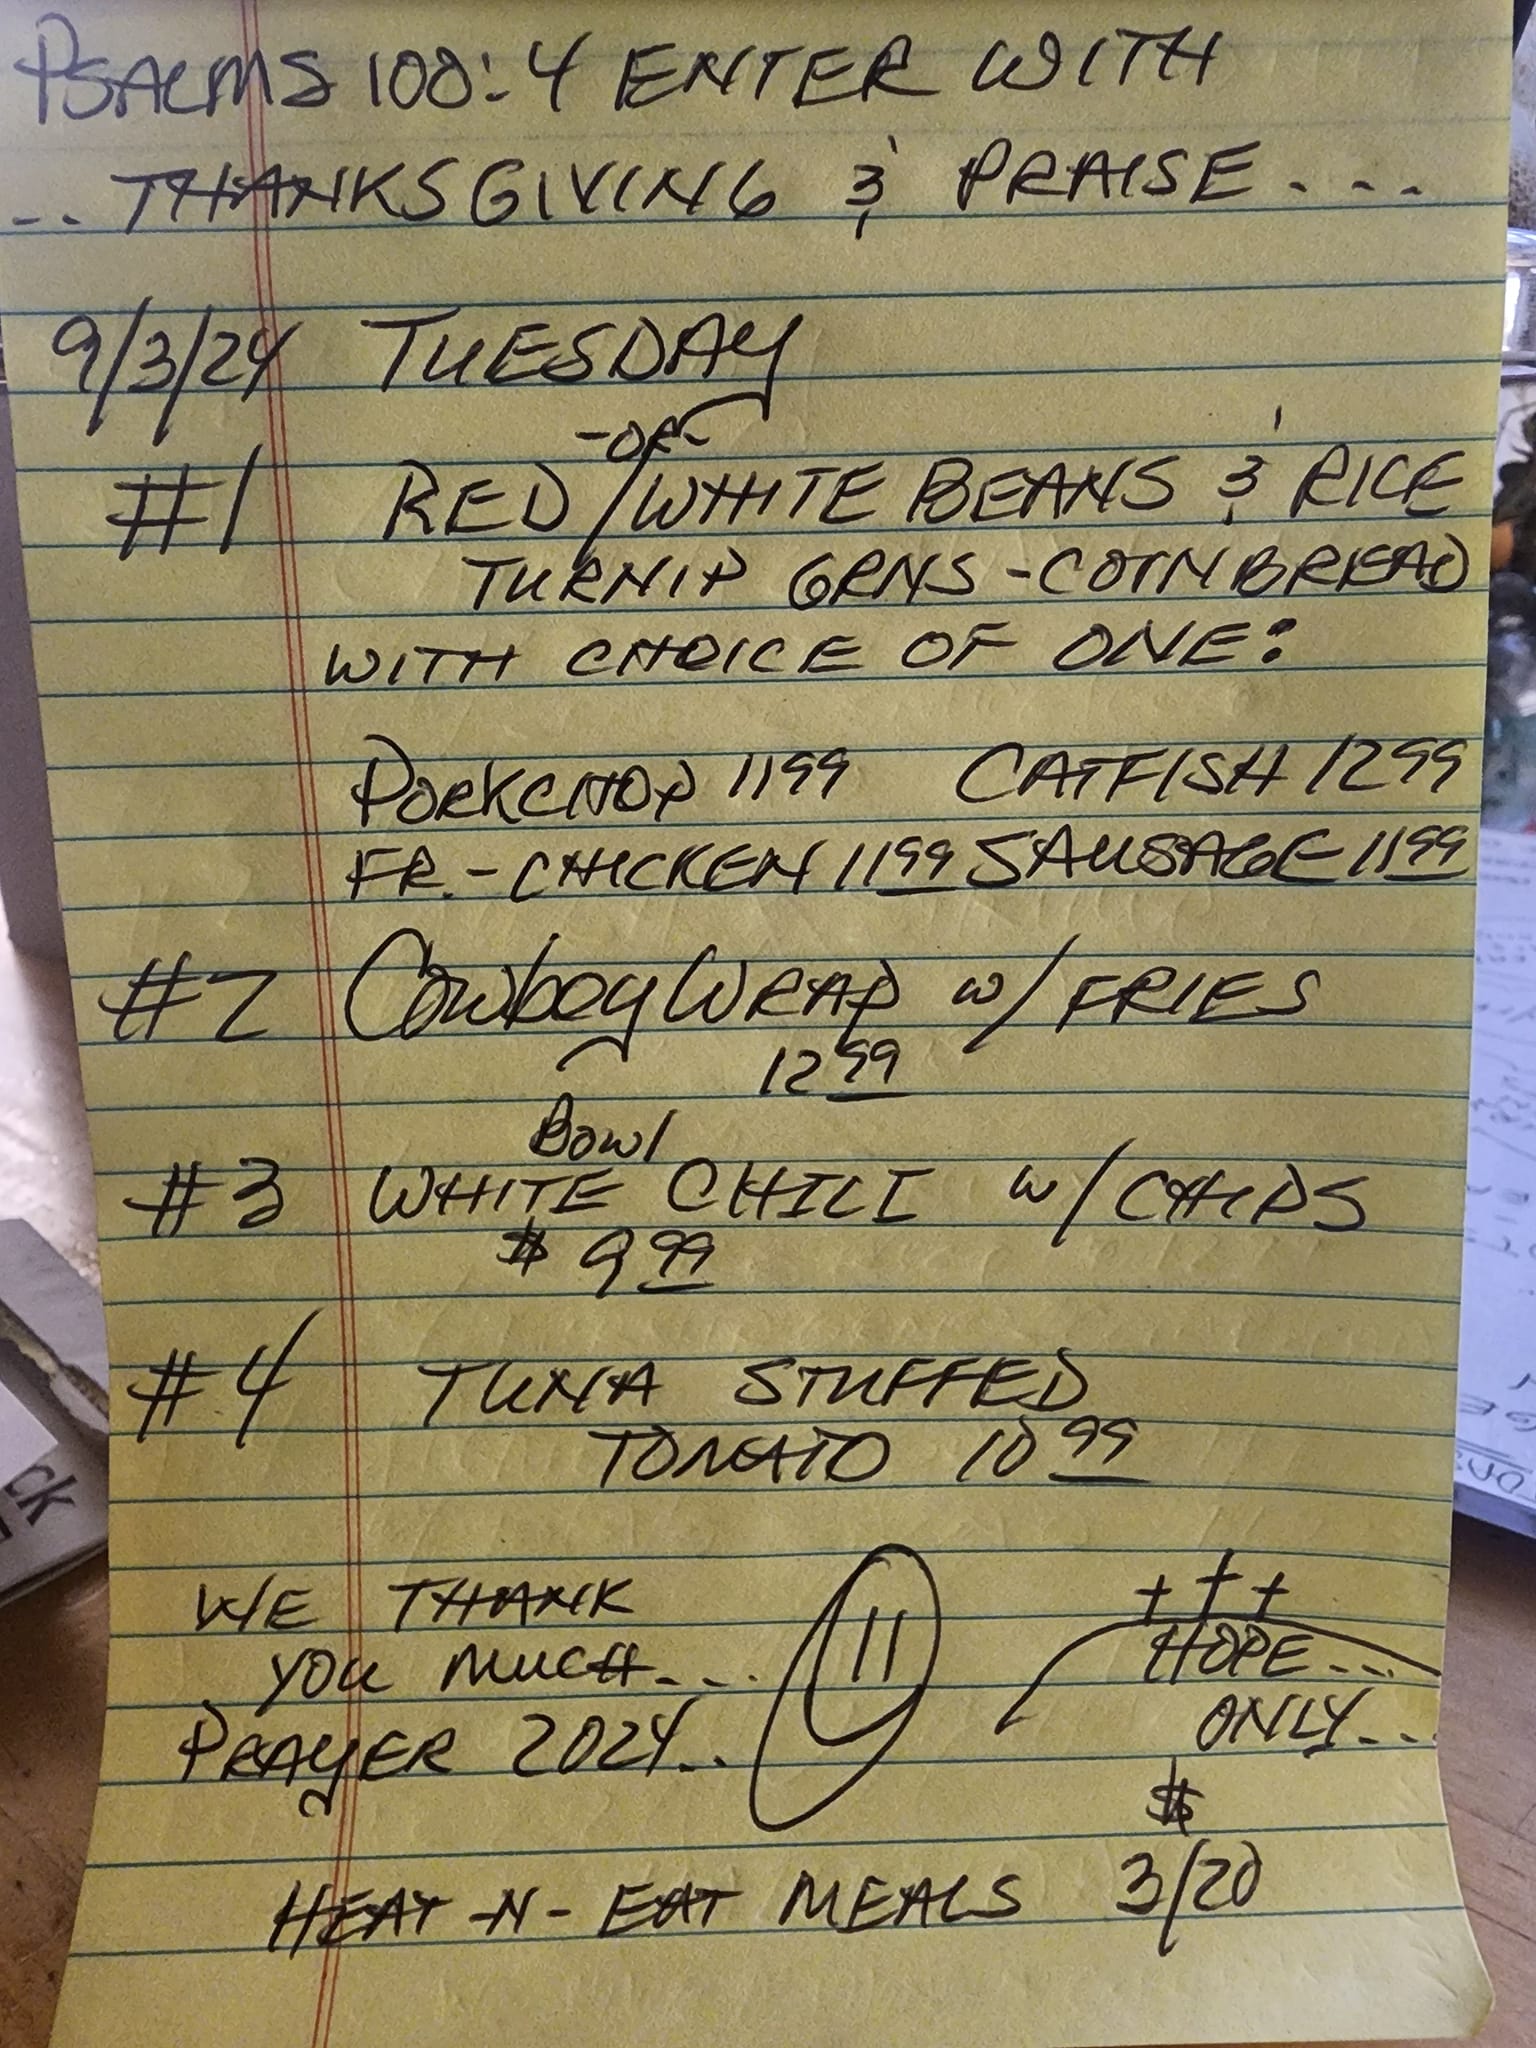 PSALMS 100:4 ENTER WITH
.. THANKSGIVING & PRAISE....
9/3/24 TUESDAY
-OR-
#1 RED/WHITE BEANS & RICE
TURNIP GRNS - CORNBREAD
WITH CHOICE OF ONE:
PORKCHOP 11 99 CATFISH 12 99
FR. - CHICKEN 11 99 SAUSAGE 11 99
#2 Cowboy WRAP w/ FRIES
12 99
Bowl
#3 WHITE CHILI w/ CHIPS
$ 9 99
#4 TUNA STUFFED
TOMATO 10 99
WE THANK
YOU MUCH....
PRAYER 2024..
11
HOPE...
ONLY...
$
HEAT-N-EAT MEALS 3/20
ck